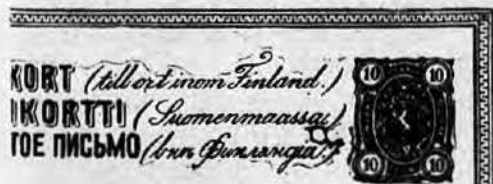 KORT (till ort inom Finland.)
IKORTTI (Suomenmaassa)
ТОЕ ПИСЬМО
10 10
10 10